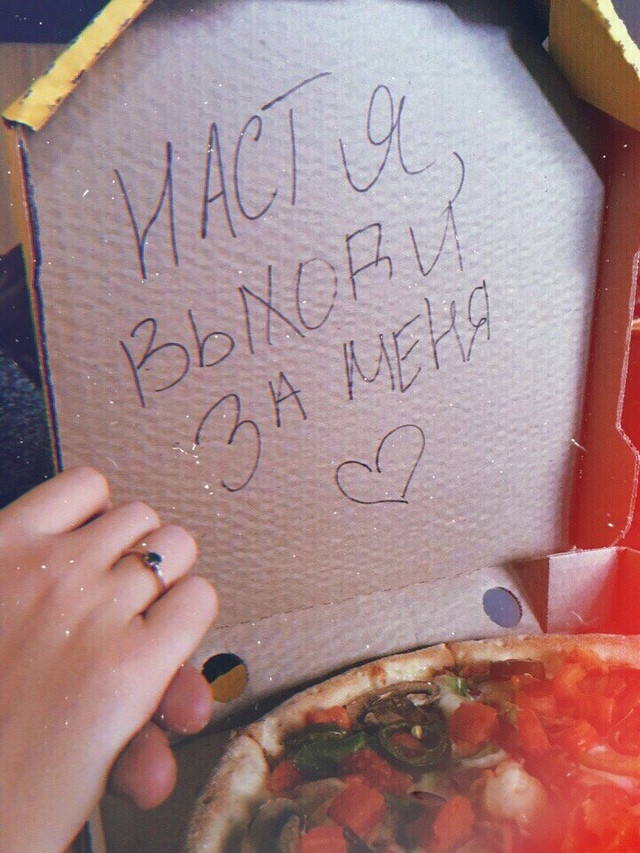 НАСТЯ,
ВЫХОДИ
ЗА МЕНЯ